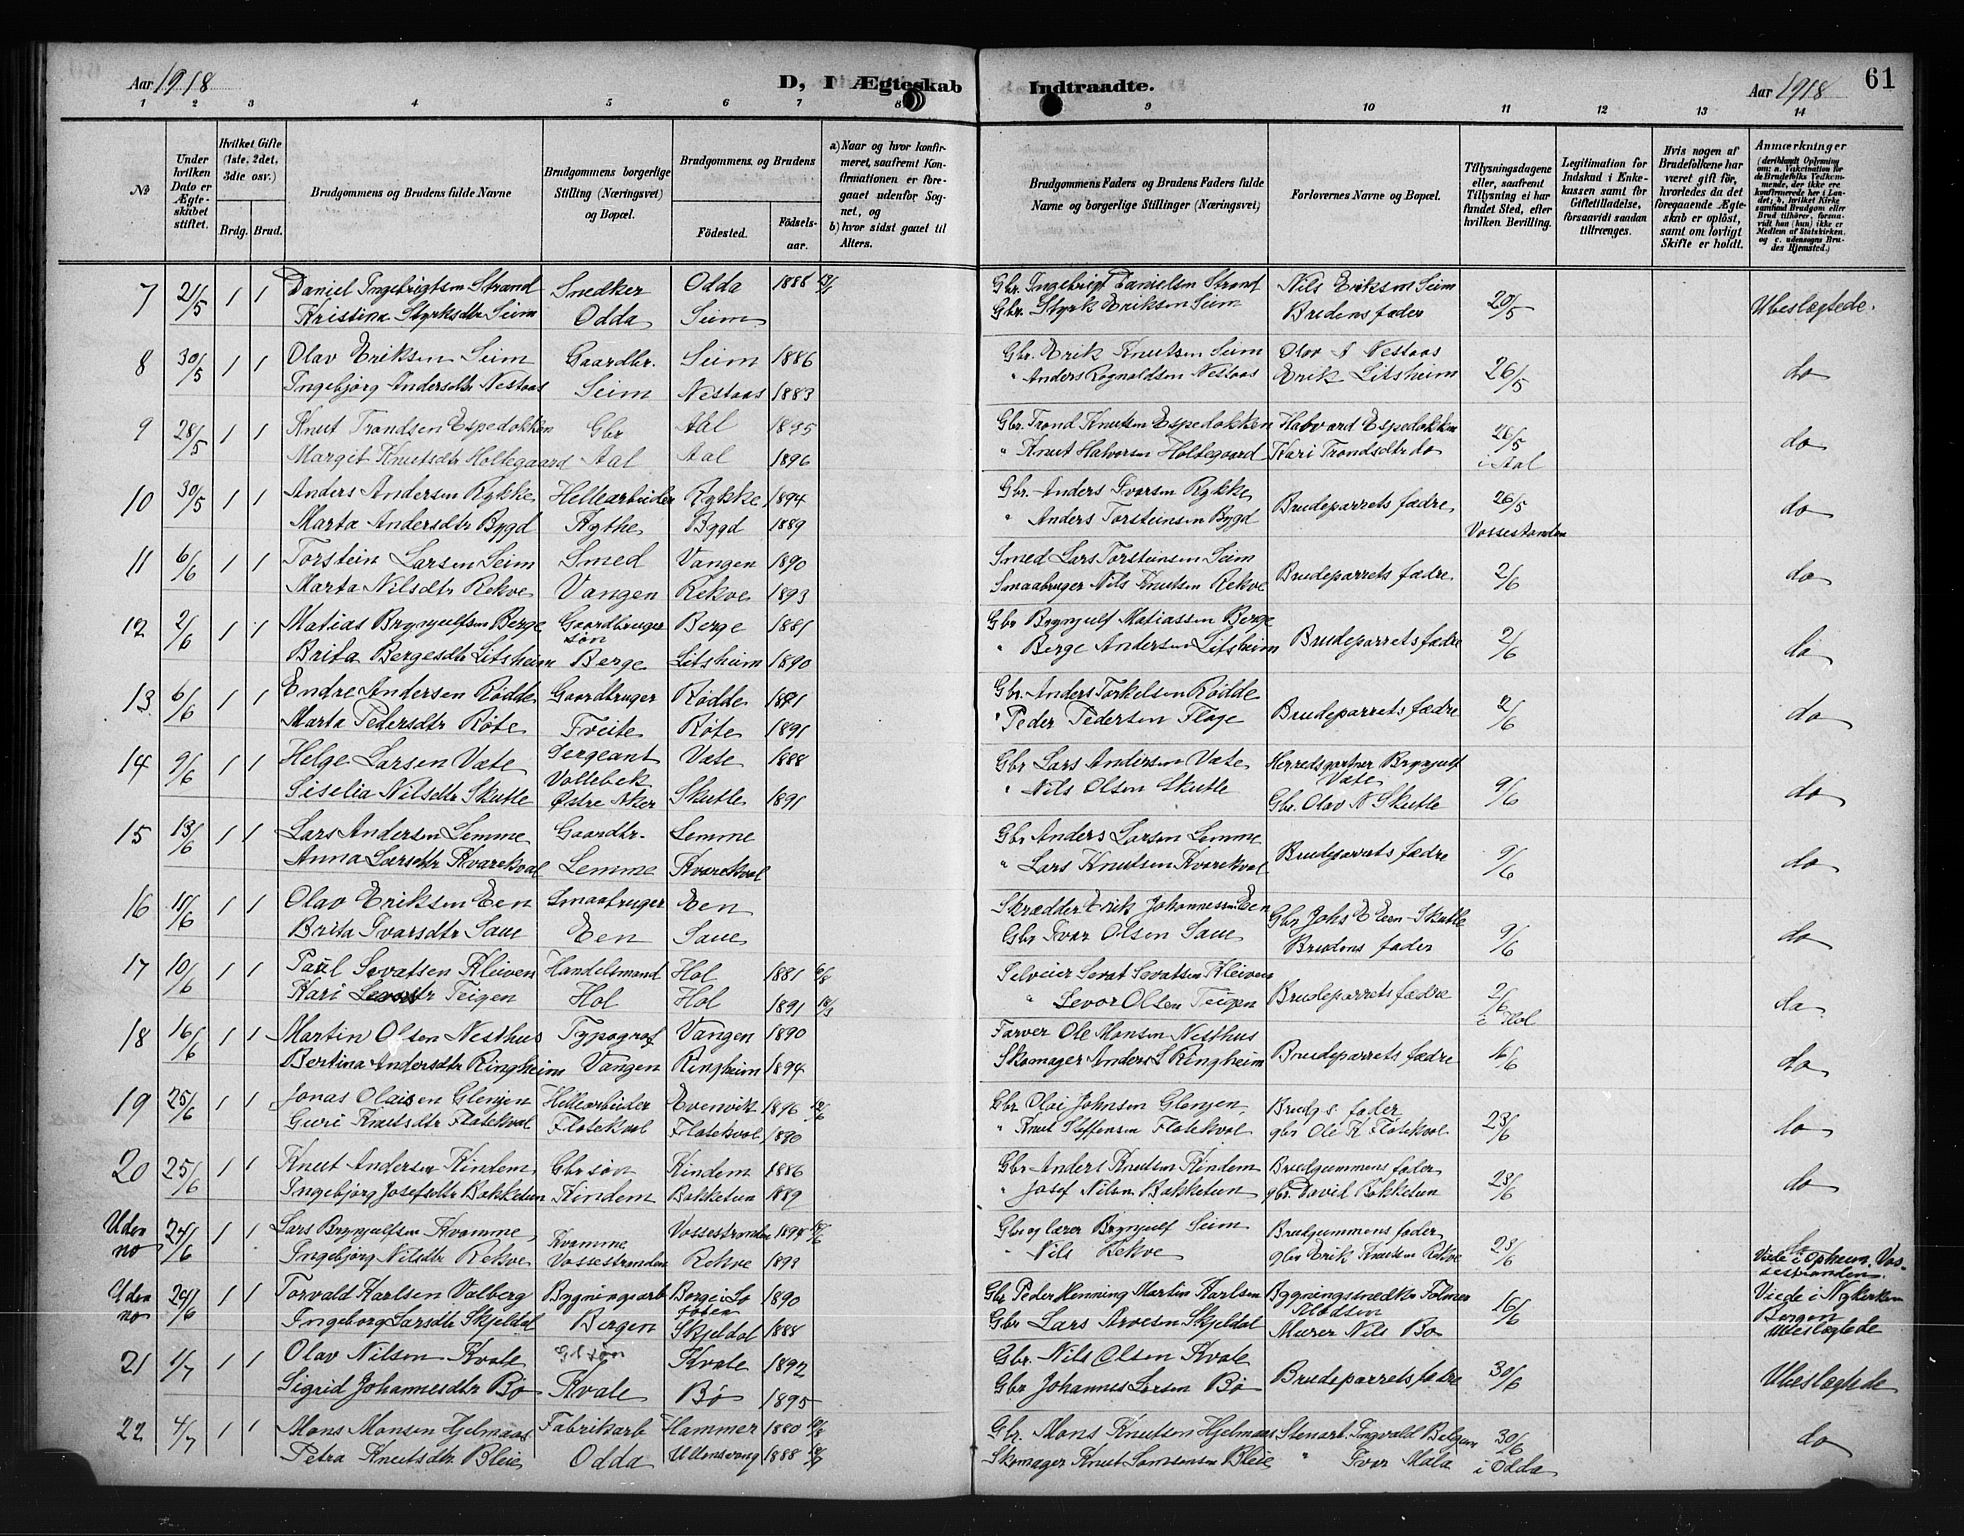 Aar 1918
D, I Ægteskab Indtraadte.
Aar 1918
61
1 2 3 4 5 6 7 8 9 10 11 12 13 14
No
Under hvilken Dato er Ægteskabet stiftet.
Hvilket Gifte (1ste, 2det, 3die osv.)
Brdg. Brud.
Brudgommens og Brudens fulde Navne
Brudgommens borgerlige Stilling (Næringsvei) og Bopæl.
Brudgommens og Brudens
Födested.
Födselsaar.
a) Naar og hvor konfirmeret, saafremt Konfirmationen er foregaaet udenfor Sognet, og
b) hvor sidst gaaet til Alters.
Brudgommens Faders og Brudens Faders fulde Navne og borgerlige Stillinger (Næringsvei)
Forlovernes Navne og Bopæl.
Tillysningsdagene eller, saafremt Tillysning ei har fundet Sted, efter hvilken Bevilling.
Legitimation for Indskud i Enkekassen samt for Giftetilladelse, forsaavidt saadan tiltrænges.
Hvis nogen af Brudefolkene har været gift för, hvorledes da det foregaaende Ægteskab er oplöst, samt om lovligt Skifte er holdt.
Anmærkninger
7 21/5 1 1 Daniel Ingebrigtsen Strand Snedker Odda 1888 Gbr. Ingebrigt Danielsen Strand Nils Eriksen Seim 20/5 Ubeslægtede.
Kristina Styrksdtr Seim Odda Seim Gbr. Styrk Eriksen Seim Brudens fader
8 30/5 1 1 Olav Eriksen Seim Gaardbr. Seim 1886 Gbr. Erik Knutsen Seim Olav A Nestaas 26/5 do
Ingebjørg Andersdtr Nestaas Seim Nestaas 1883 " Anders Rognaldsen Nestaas Erik Litsheim
9 28/5 1 1 Knut Trondsen Espedokken Gbr Aal 1895 Gbr. Trond Knutsen Espedokken Halvard Espedokken 26/5 do
Margit Knutsdtr Holtegaard Aal Aal 1896 " Knut Halvorsen Holtegaard Kari Trondsdtr do i Aal
10 30/5 1 1 Anders Andersen Rykke Hellearbeider Rykke 1894 Gbr. Anders Ivarsen Rykke Brudeparrets fædre 26/5 do
Marta Andersdtr Bygd Kythe Bygd 1889 " Anders Torsteinsen Bygd Vossestranden
11 6/6 1 1 Torstein Larsen Seim Smed Vangen 1890 Smed Lars Torsteinsen Seim Brudeparrets fædre 2/6 do
Marta Nilsdtr Rekve Vangen Rekve 1893 Smaabruger Nils Knutsen Rekve
12 2/6 1 1 Matias Brynjulfsen Berge Gaardbruger søn Berge 1881 Gbr Brynjulf Matiassen Berge Brudeparrets fædre 2/6 do
Brita Bergesdtr Litsheim Berge Litsheim 1890 " Berge Andersen Litsheim
13 6/6 1 1 Endre Andersen Rødde Gaardbruger Rødde Gbr. Anders Torkelsen Rødde Brudeparrets fædre 2/6 do
Marta Pedersdtr Røte Tveite Røte 1891 " Peder Pedersen Flage
14 9/6 1 1 Helge Larsen Væte Sergeant Væte 1888 Gbr Lars Andersen Væte Brynjulf Væte 9/6 do
Siselia Nilsdtr Skutle Østre Aker Skutle 1891 " Nils Olsen Skutle Gbr. Olav N Skutle
15 13/6 1 1 Lars Andersen Lemme Gaardbr. Lemme Gbr Anders Larsen Lemme Brudeparrets fædre 9/6 do
Anna Larsdtr Kvarekval Lemme Kvarekval " Lars Knutsen Kvarekval
16 1 1 Olav Eriksen Een Smaabruger Een Skrædder Erik Johannessen Een Gbr Johs E Een-Skutle 9/6 do
Brita Ivarsdtr Saue Een Saue Gbr Ivar Olsen Saue Brudens fader
17 10/6 1 1 Paul Sevatsen Kleiven Handelsmand Hol 1881 Selveier Sevat Sevatsen Kleiven Brudeparrets fædre 2/6 do
Kari Teigen Hol Hol 1891 " Levor Olsen Teigen i Hol
18 16/6 1 1 Martin Olsen Nesthus Typograf Vangen 1890 Farver Ole Monsen Nesthus Brudeparrets fædre 16/6 do
Bertina Andersdtr Ringheim Vangen Ringheim 1894 Skomager Anders L Ringheim
19 25/6 1 1 Jonas Olaisen Glenjen Hellearbeider Evenvik 1896 Gbr Olai Johnsen Glenjen Brudg s. fader 23/6 do
Guri Knutsdtr Flatekval Flatekval Flatekval 1890 " Knut Steffensen Flatekval gbr Ole K Flatekval
20 25/6 1 1 Knut Andersen Kindem Gbr søn Kindem 1886 Gbr Anders Knutsen Kindem Brudgummens fader 23/6 do
Ingebjørg Josefsdtr Bakketun Kindem Bakketun 1889 " Josef Nilsen Bakketun gbr David Bakketun
Uden no 24/6 1 1 Lars Brynjulfsen Kvamme Kvamme Vossestranden Gbr og lærer Brynjulf Seim Brudgummens fader 23/6
Ingebjørg Nilsdtr Rekve Vossestranden Rekve 1893 " Nils Rekve gbr Erik Knutsen Rekve Viede i Opheim, Vossestranden.
Uden no 24/6 1 1 Torvald Karlsen Valberg Bygningsarb Borge i Lofoten 1890 Gbr Peder Henning Martin Karlsen Bygningssnedker Folmer Madsen 16/6 Viede i Nykirken Bergen
Ingeborg Larsdtr Skjeldal Bergen Skjeldal 1888 Gbr Lars Arvesen Skjeldal Murer Nils Bø Ubeslægtede
21 1/7 1 1 Olav Nilsen Kvale Gbr søn Kvale 1892 Gbr. Nils Olsen Kvale Brudeparrets fædre 30/6 Ubeslægtede
Sigrid Johannesdtr Bø Kvale Bø 1895 Gbr Johannes Larsen Bø
22 4/7 1 1 Mons Monsen Hjelmaas Fabrikarb Hammer 1880 Gbr. Mons Knutsen Hjelmaas Stenarb. Ingvald 30/6 do
Petra Knutsdtr Bleie Odda Ullensvang 1888 Skomager Knut Samsonsen Bleie " Ivar Mala i Odda